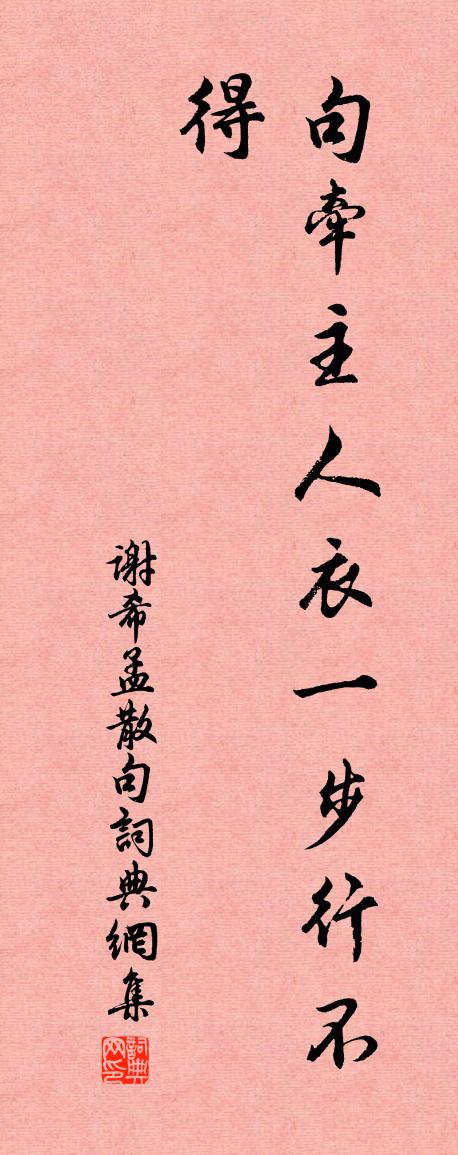 句牽主人衣一步行不
得
謝希孟散句詞典網集
詞典
网印